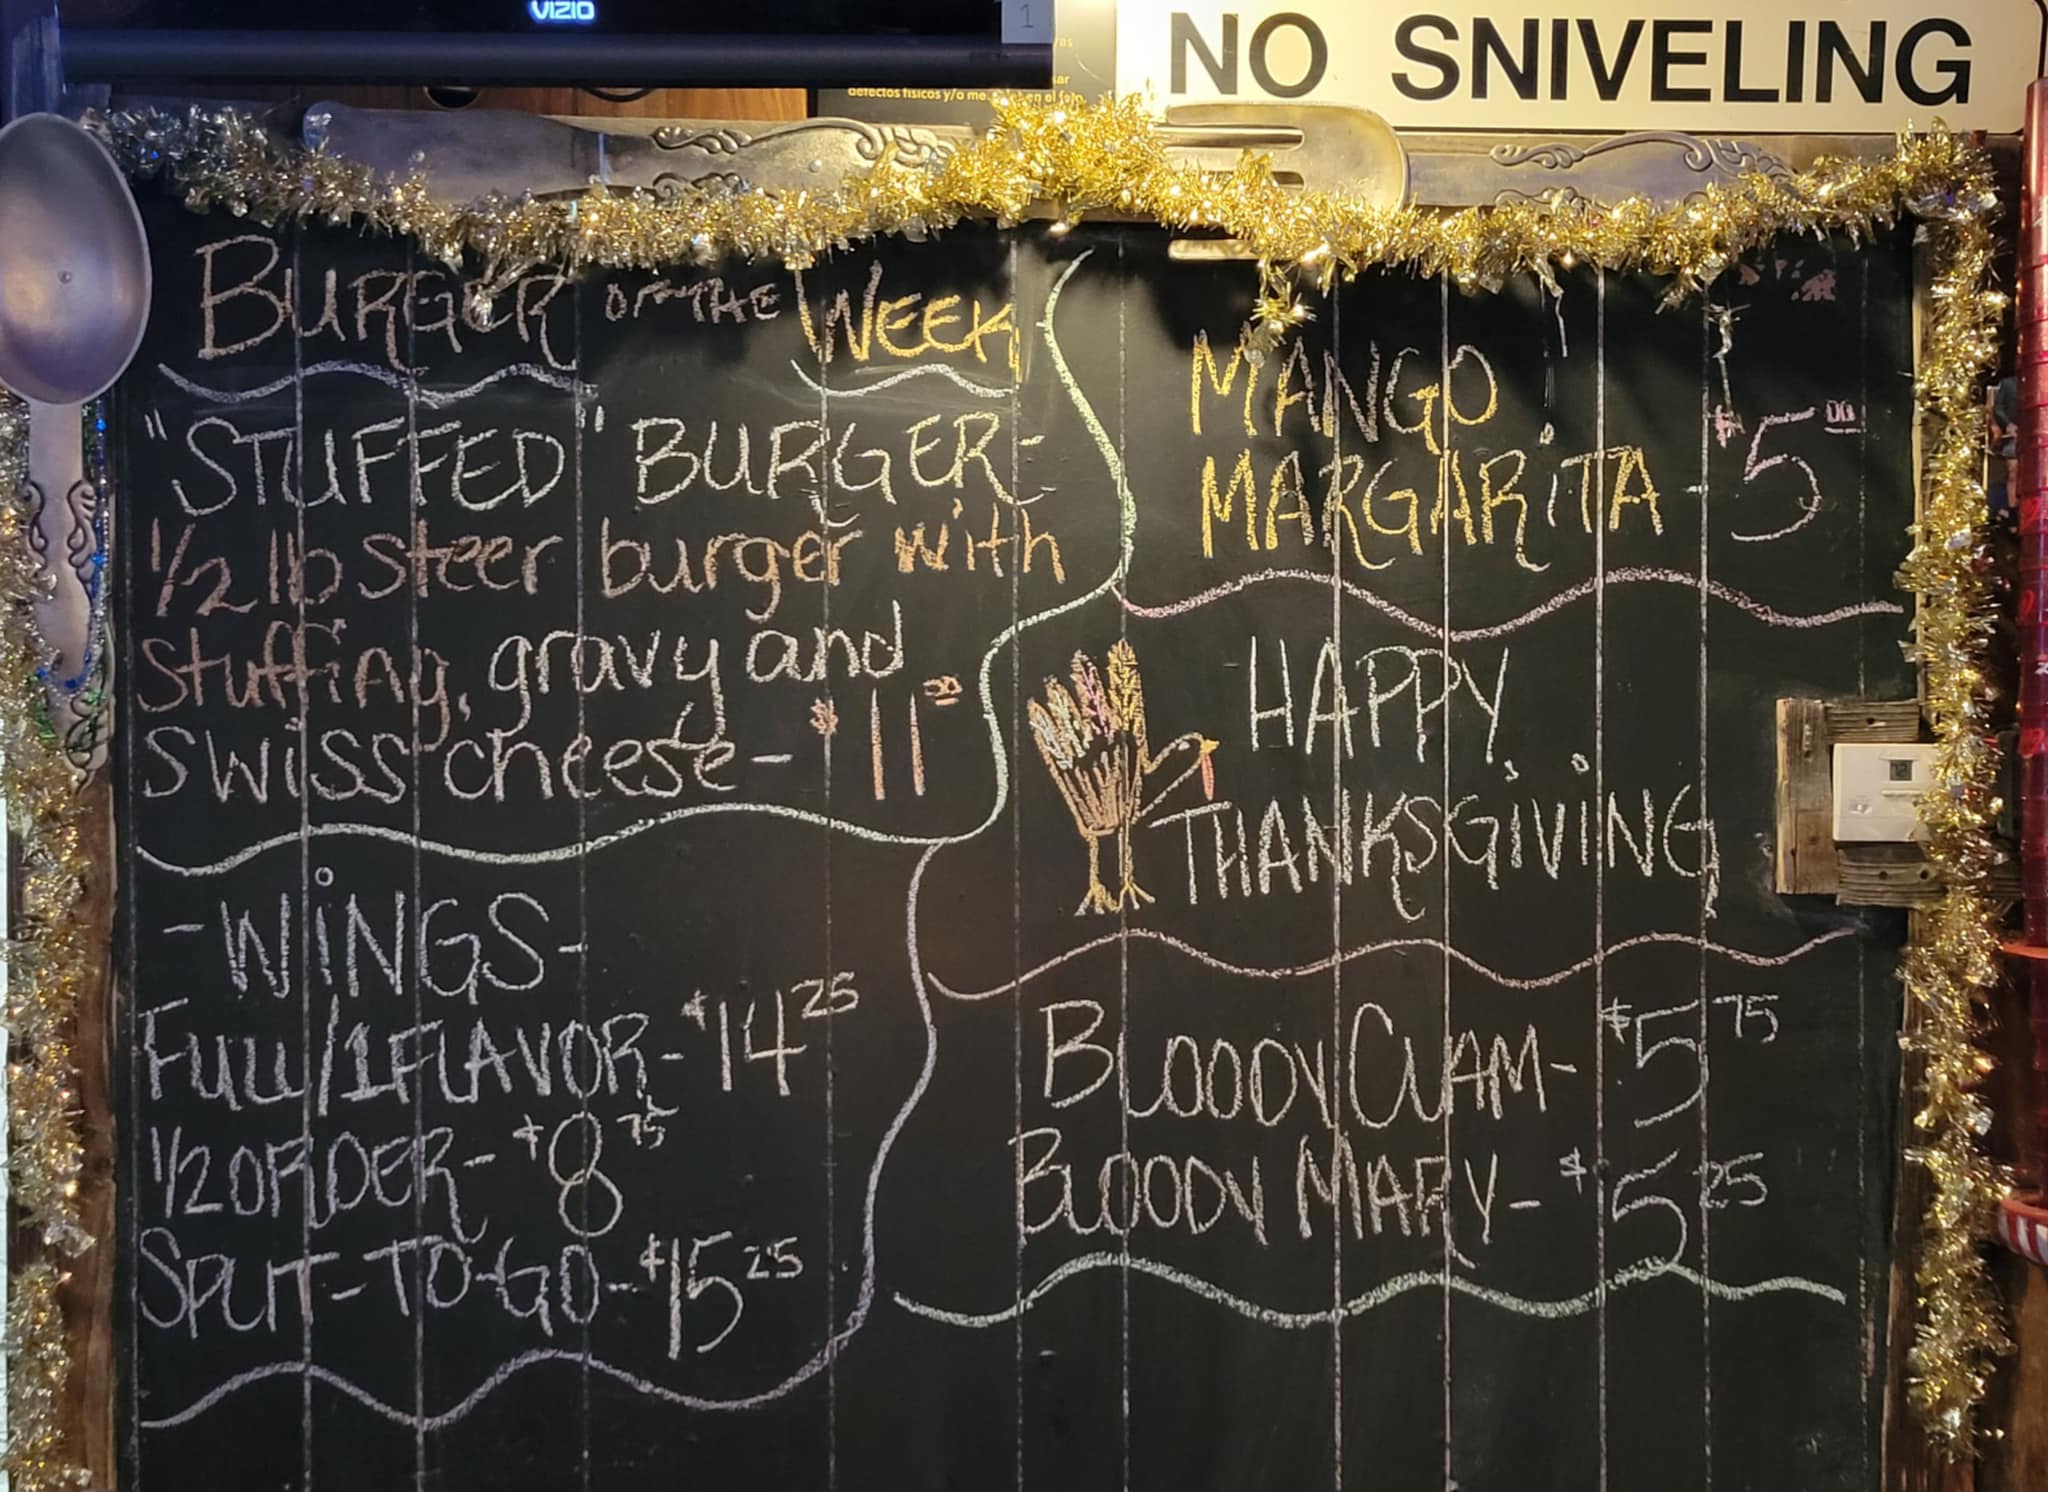 VIZIO
1
NO SNIVELING
defectos físicos y/o
BURGER OF THE WEEK
"STUFFED" BURGER-
1/2 lb steer burger with
stuffing, gravy and
swiss cheese- $11.00
-WINGS-
FULL/1 FLAVOR- $14.25
1/2 ORDER- $8.75
SPLIT-TO-GO- $15.25
MANGO
MARGARITA - $5.00
HAPPY
THANKSGIVING
BLOODY CLAM- $5.75
BLOODY MARY- $5.25